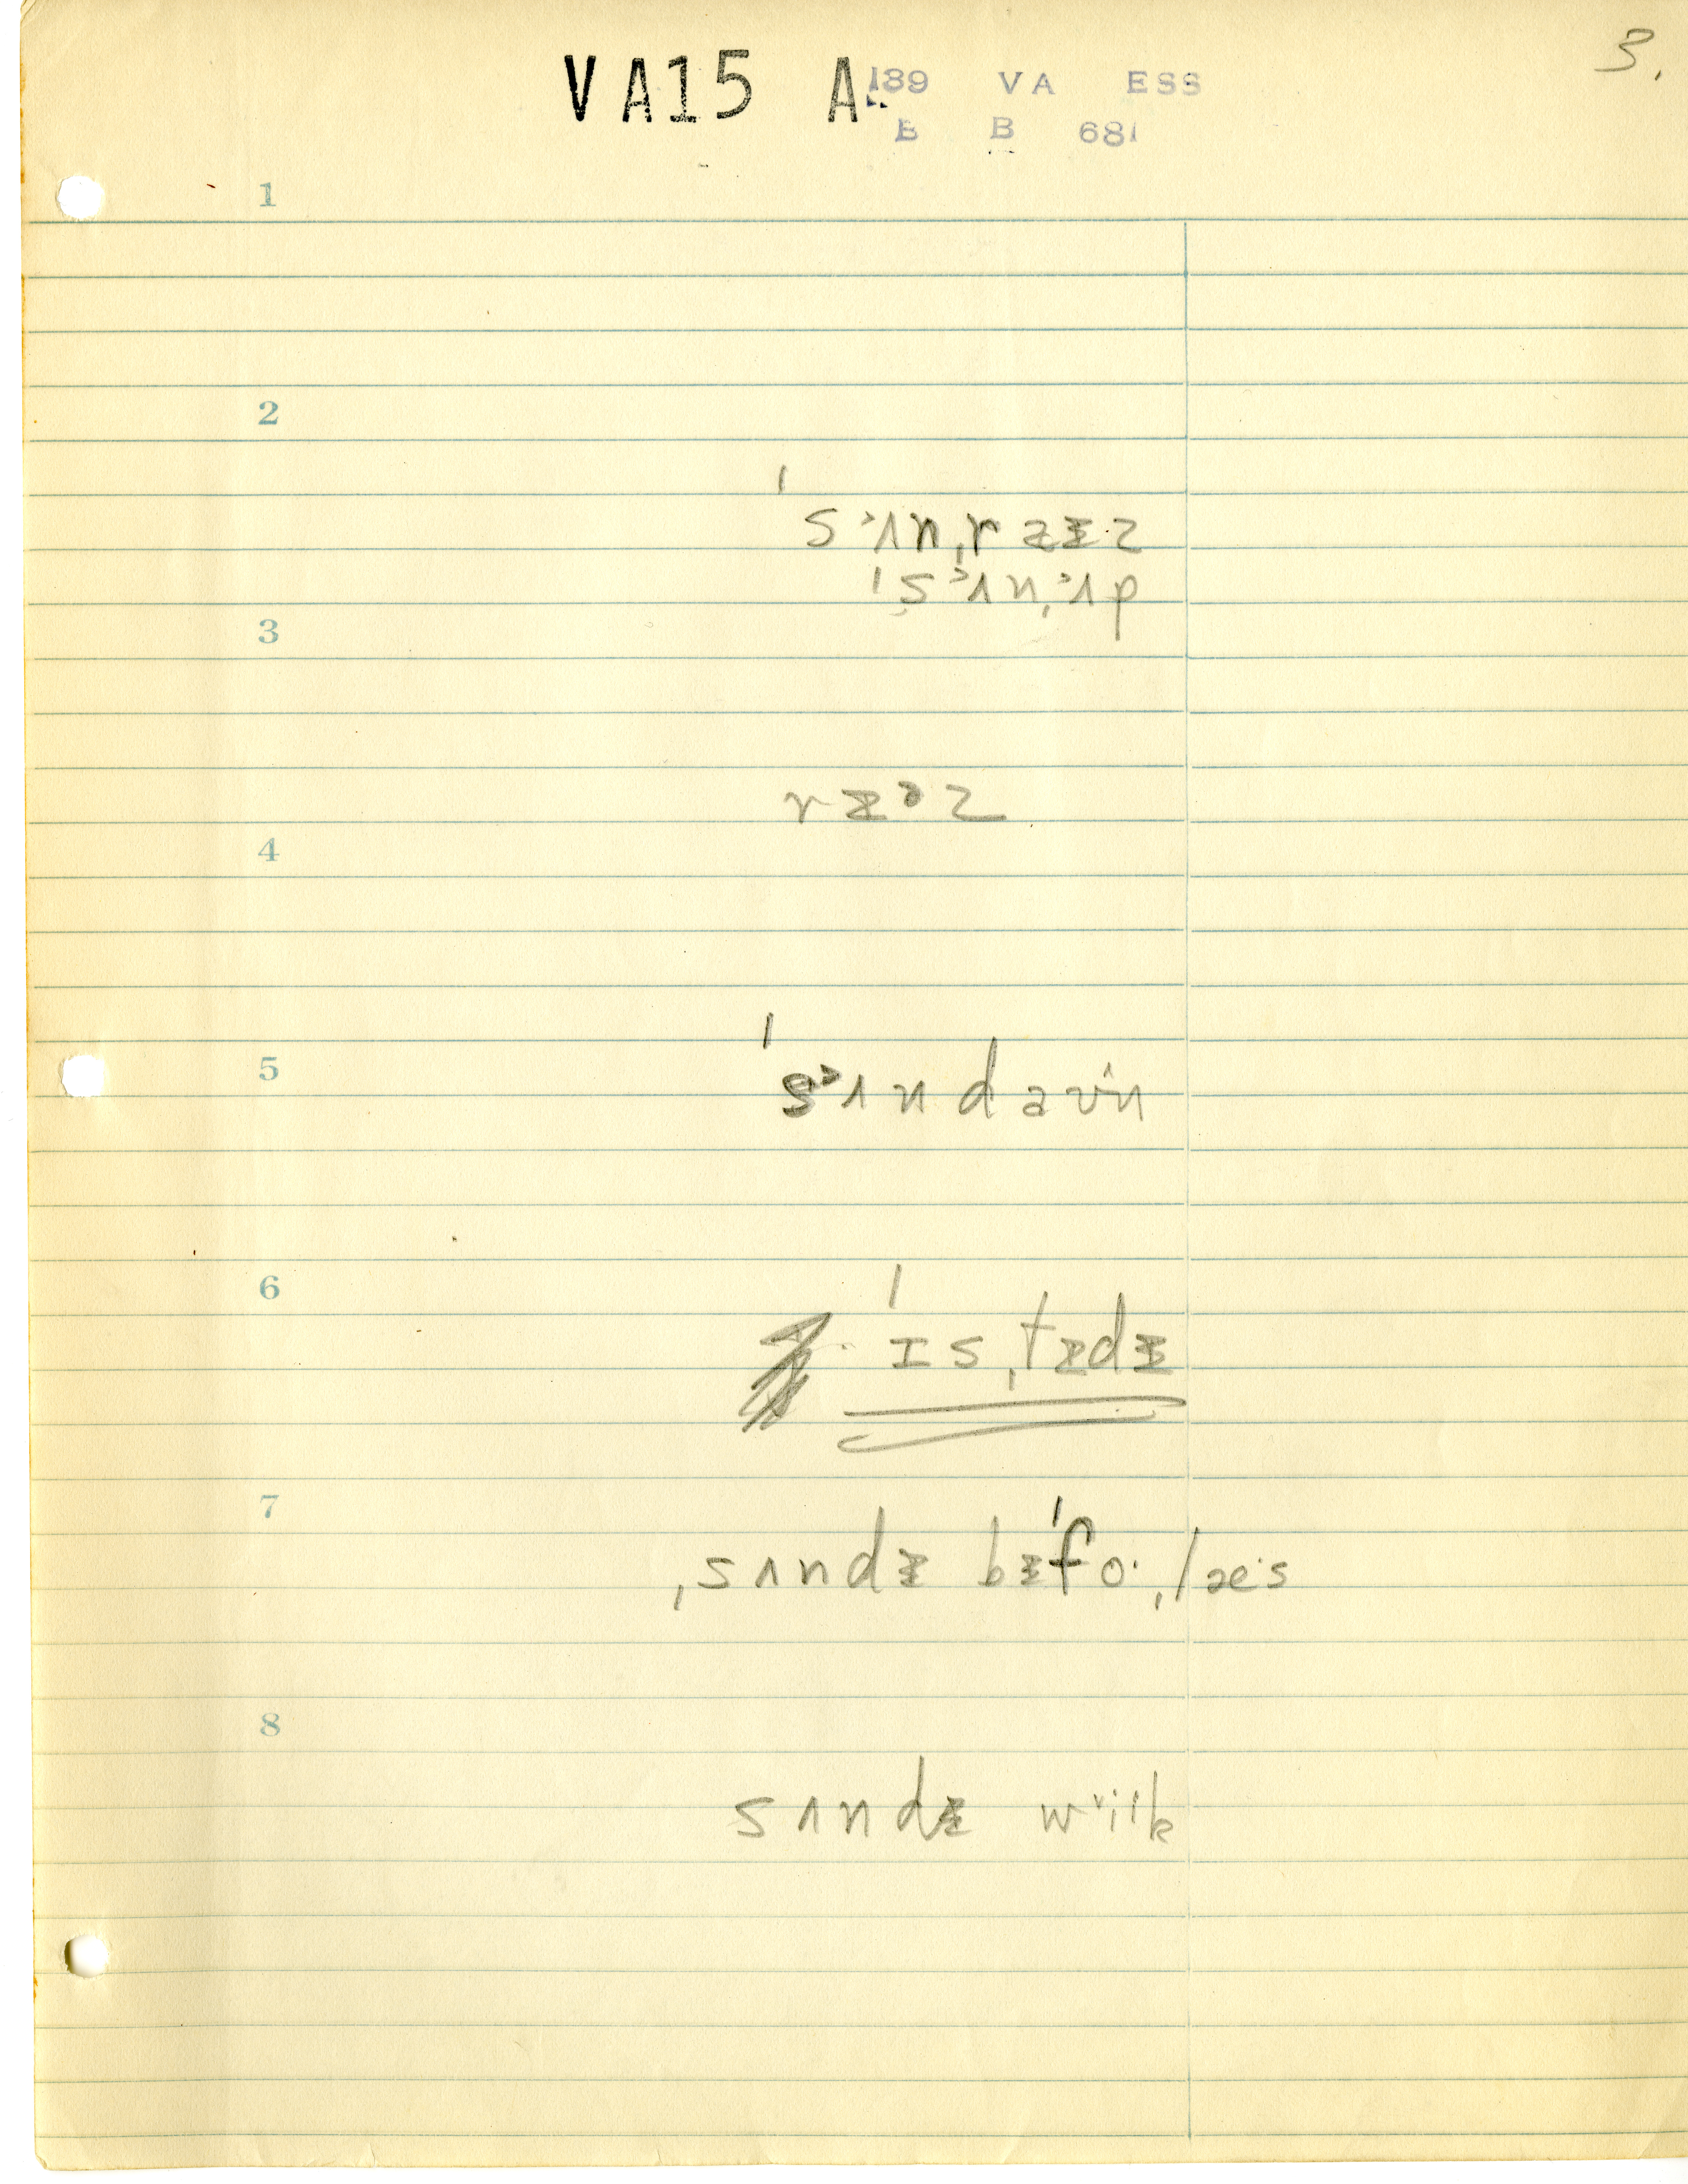 3.
VA15 A
189 VA ESS
B B 681
1
2
ˈsᵊʌnˌrɑᵻz
ˈsᵊʌnˌᵊʌp
3
rᵻᵊz
4
5
ˈsᵊʌndaʊᵊn
6
ˈɪsˌtᵻdᵻ
7
ˌsʌndᵻ bᵻˈfoˑˌlæˑs
8
sʌndᵻ wᵊiˑk